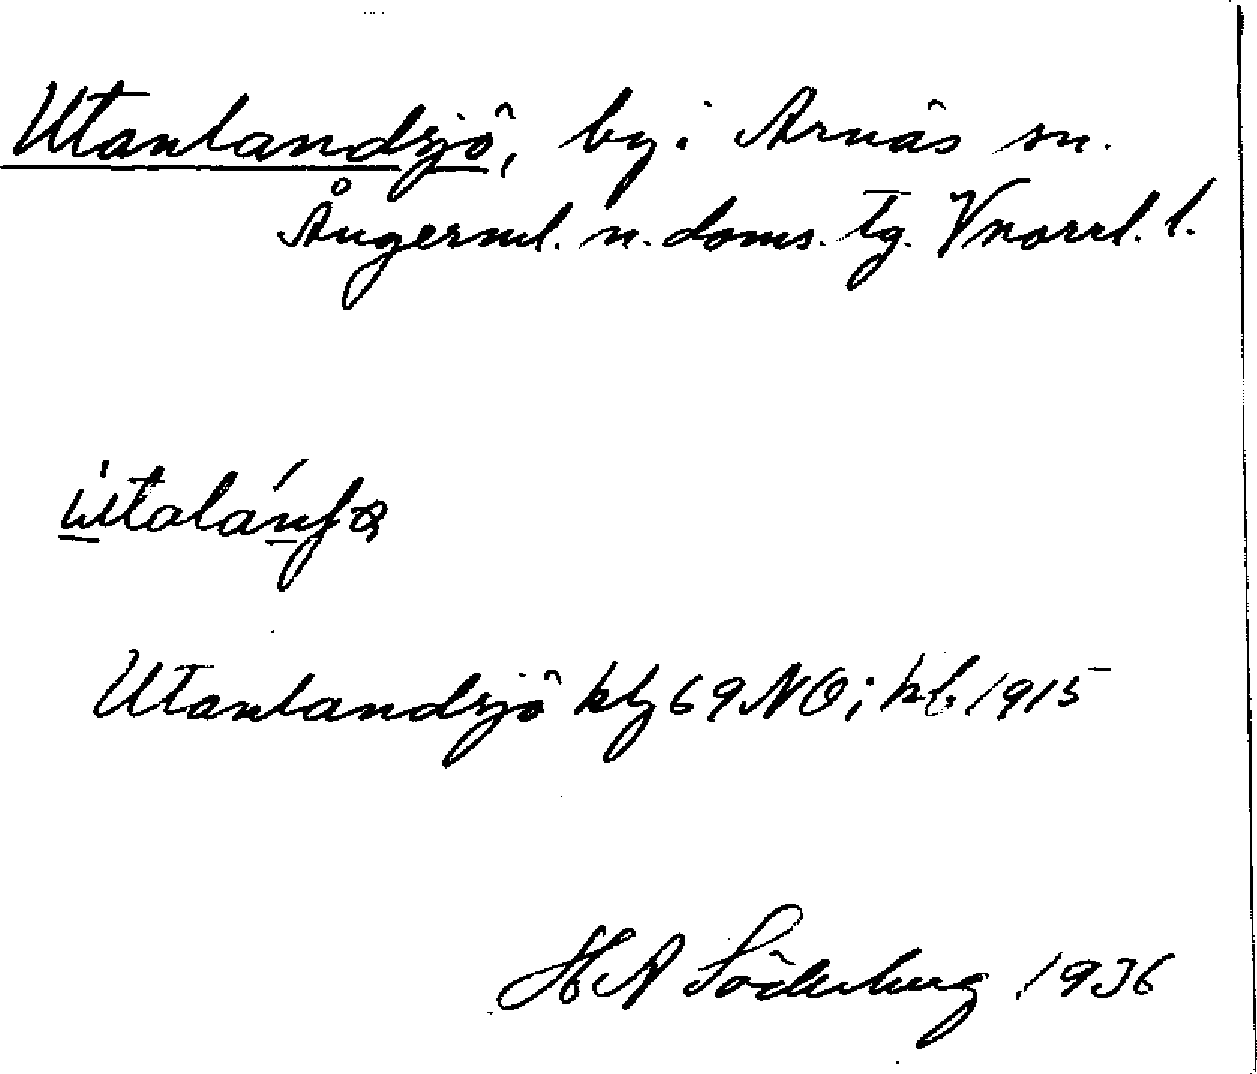 Utanlandsjö, by i Arnäs sn.
Ångerml. n. doms. tg. Vnorrl. l.
Utanlandsjö ktj 69 NO; kb 1915
HA Söderberg 1936